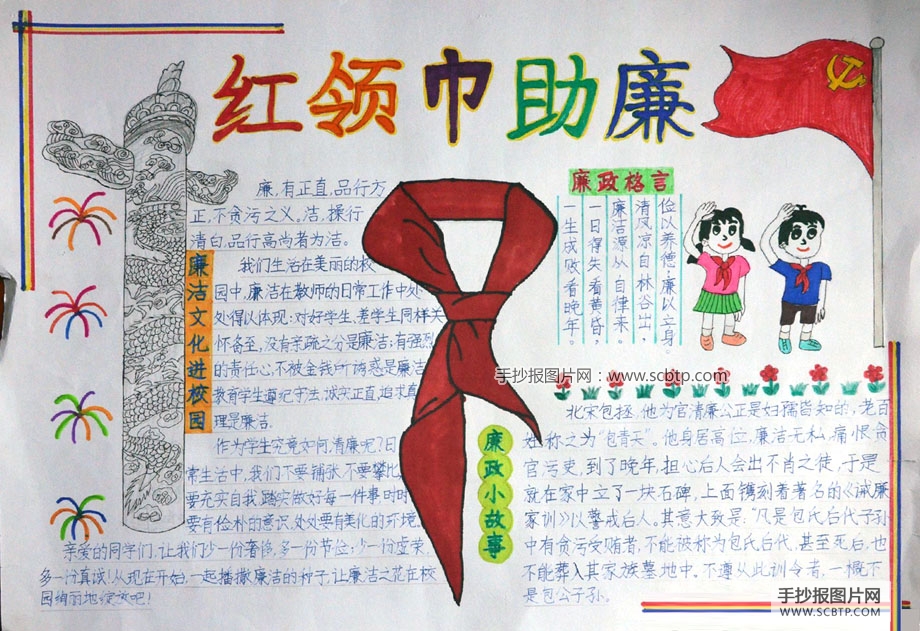 红领巾助廉
廉，有正直，品行方
正，不贪污之义。洁，操行
清白，品行高尚者为洁。
廉洁文化进校园
我们生活在美丽的校
园中，廉洁在教师的日常工作中处
处得以体现：对好学生、差学生同样关
怀备至，没有亲疏之分是廉洁；有强烈
的责任心，不被金钱所诱惑是廉洁
教育学生遵纪守法，诚实正直，追求真
理是廉洁。
作为学生究竟如何清廉呢？日
常生活中，我们不要铺张，不要攀比，
要充实自我，踏实做好每一件事时时
要有俭朴的意识，处处要有美化的环境。
亲爱的同学们，让我们少一份奢侈，多一份节俭；少一份虚荣，
多一份真诚！从现在开始，一起播撒廉洁的种子，让廉洁之花在校
园绚丽地绽放吧！
廉政格言
俭以养德，廉以立身。
清风凉自林谷出，
廉洁源从自律来。
一日得失看黄昏，
一生成败看晚年。
手抄报图片网：www.scbtp.com
廉政小故事
北宋包拯，他为官清廉公正是妇孺皆知的，老百
姓称之为“包青天”。他身居高位，廉洁无私，痛恨贪
官污吏，到了晚年，担心后人会出不肖之徒，于是
就在家中立了一块石碑，上面镌刻着著名的《诫廉
家训》以警戒后人。其意大致是：“凡是包氏后代子孙
中有贪污受贿者，不能被称为包氏后代，甚至死后，也
不能葬入其家族墓地中。不遵从此训令者，一概不
是包公子孙。
手抄报图片网
WWW.SCBTP.COM